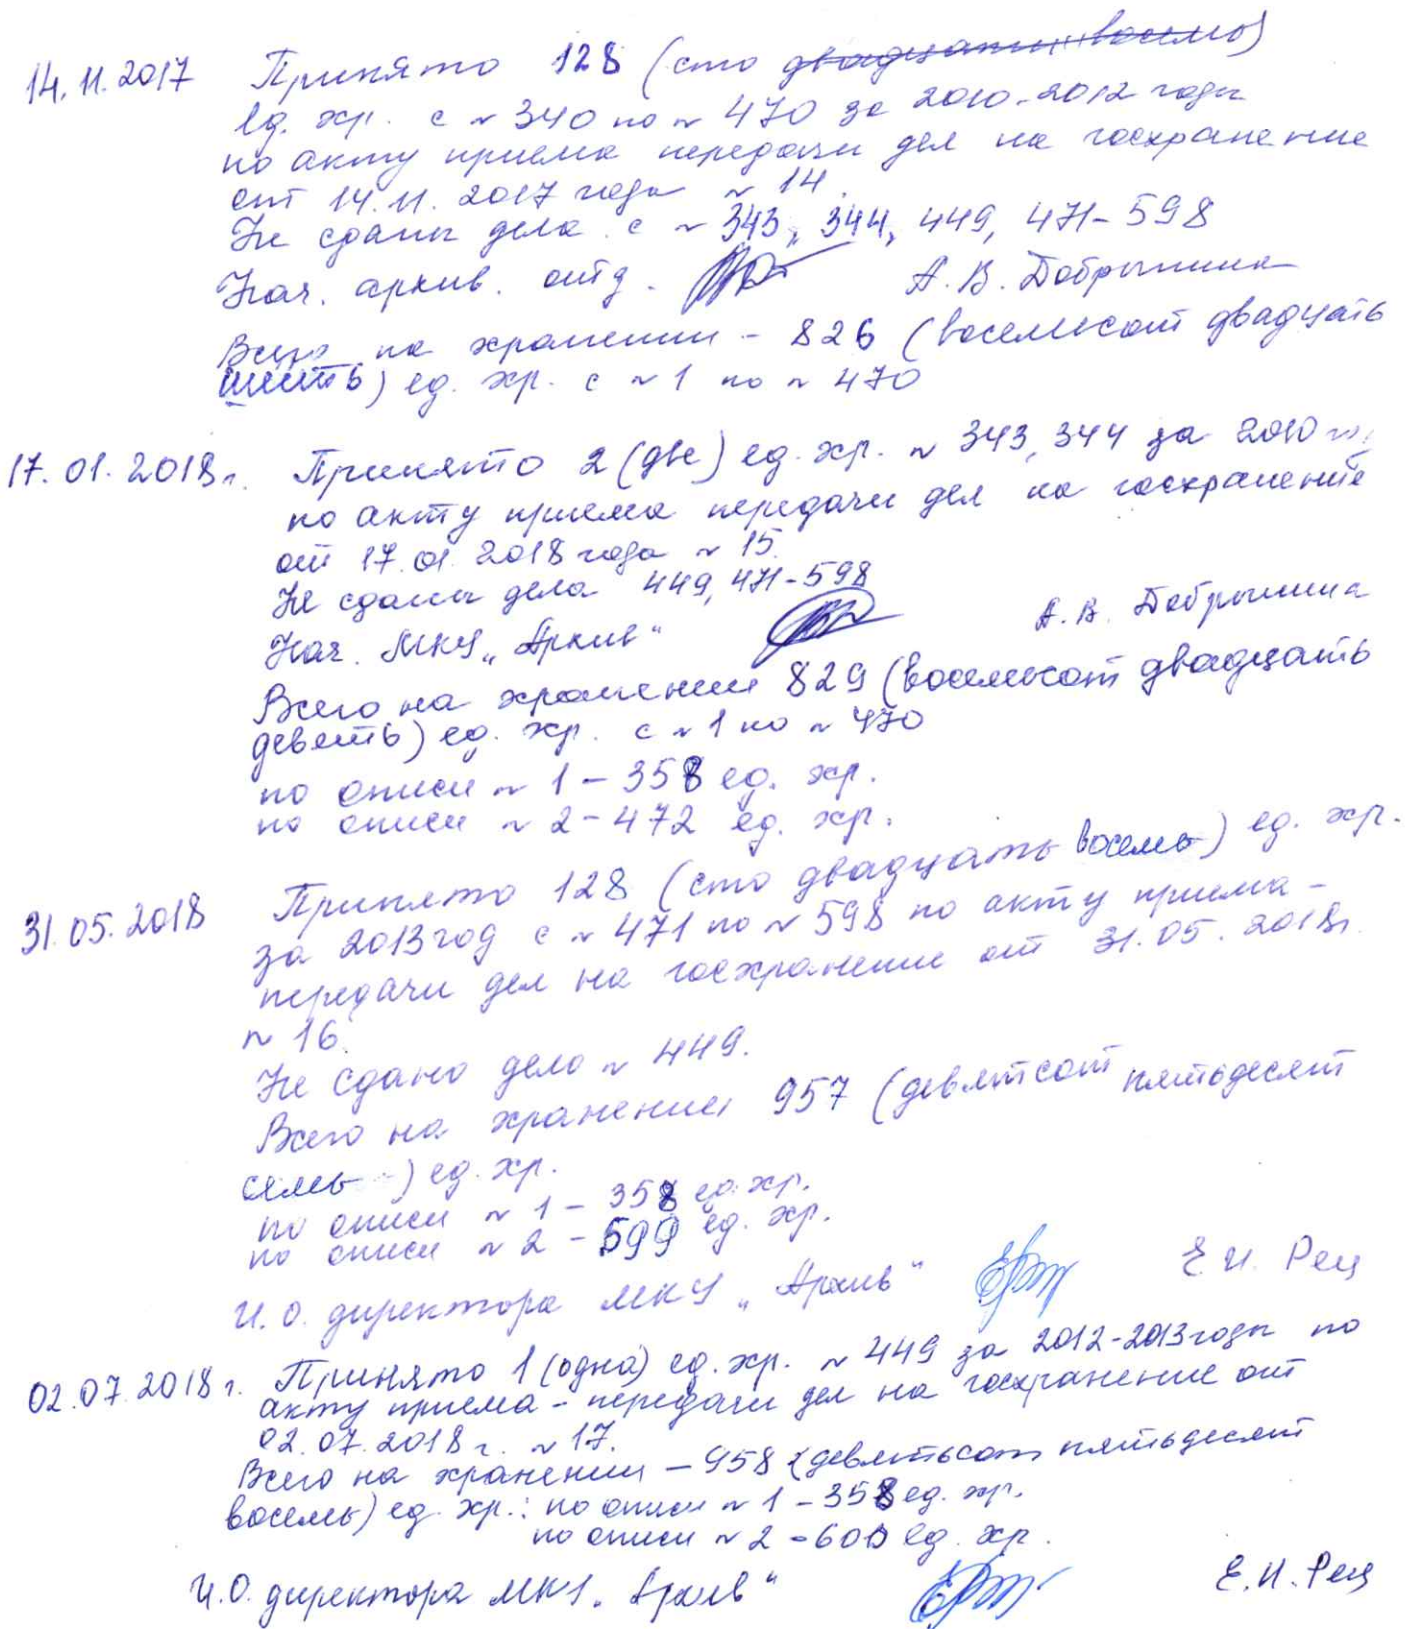 14.11.2017 Принято 128 (сто двадцать восемь)
ед. хр. с № 340 по № 470 за 2010-2012 годы
по акту приема передачи дел на госхранение
от 14.11.2017 года № 14.
Не сданы дела с № 343, 344, 449, 471-598
Нач. архив. отд. А.В. Добрынина
Всего на хранении - 826 (восемьсот двадцать
шесть) ед. хр. с № 1 по № 470
17.01.2018г. Принято 2 (две) ед. хр. № 343, 344 за 2010 год
по акту приема передачи дел на госхранение
от 17.01.2018 года № 15.
Не сданы дела 449, 471-598
Нач. МКУ „Архив“ А.В. Добрынина
Всего на хранении 829 (восемьсот двадцать
девять) ед. хр. с № 1 по № 470
по описи № 1 - 358 ед. хр.
по описи № 2 - 472 ед. хр.
31.05.2018 Принято 128 (сто двадцать восемь) ед. хр.
за 2013 год с № 471 по № 598 по акту приема-
передачи дел на госхранение от 31.05.2018г.
№ 16.
Не сдано дело № 449.
Всего на хранении 957 (девятсот пятьдесят
семь) ед. хр.
по описи № 1 - 358 ед. хр.
по описи № 2 - 599 ед. хр.
И.О. директора МКУ „Архив“ Е.И. Рец
02.07.2018г. Принято 1 (одна) ед. хр. № 449 за 2012-2013 годы по
акту приема - передачи дел на госхранение от
02.07.2018 г. № 17.
Всего на хранении - 958 (девятьсот пятьдесят
восемь) ед. хр.: по описи № 1 - 358 ед. хр.
по описи № 2 - 600 ед. хр.
И.О. директора МКУ „Архив“ Е.И. Рец